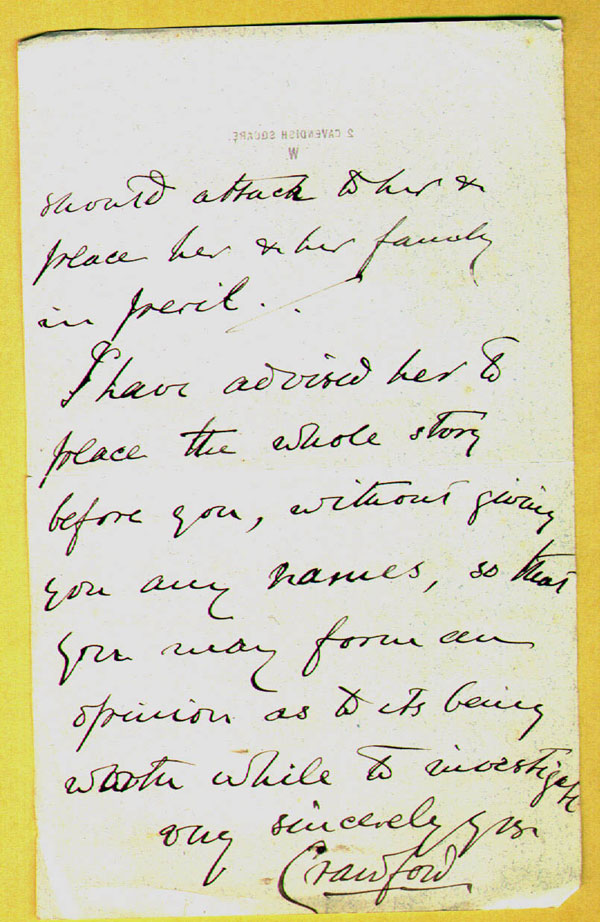 2 CAVENDISH SQUARE
W
should attach to her &
place her & her family
in peril.
I have advised her to
place the whole story
before you, without giving
you any names, so that
you may form an
opinion as to its being
worth while to investigate
very sincerely yrs
Crawford